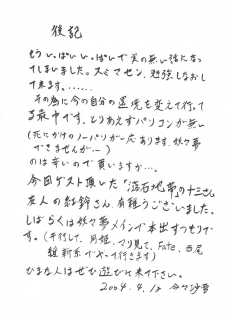 後記
もういっぱいいっぱいで文の無い話になっ
てしまいました。スミマセン、勉強しなおし
て来ます。......
その為に今の自分の環境を変えて行って
る最中です。とりあえずパソコンが無い
(死にかけのノーパソが一応あります、妖々夢
できませんが...)
のは辛いので買いますが...。
今回ゲスト頂いた「溶石地帯」の十三さん
友人の紅鉾さん、有難うございました。
しばらくは妖々夢メインで本出すつもりで
す。(平行して、月姫、マリ見て、Fate、西尾
維新系でやって行きます)
ひまな人はぜひ遊びに来て下さい。
2004. 4. 12